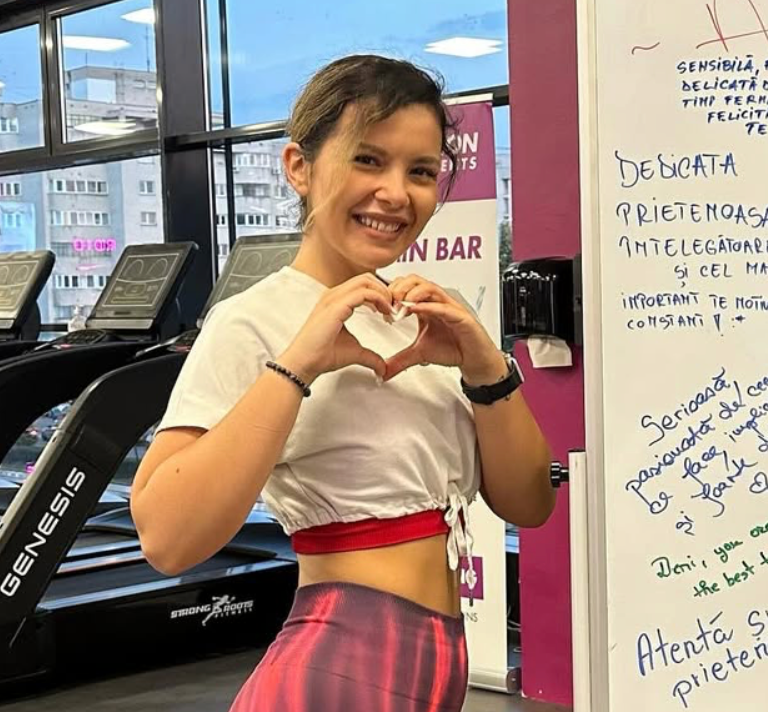 ON
ENTS
IN BAR
GENESIS
STRONG ROOTS
FITNESS
SENSIBILĂ,
DELICATĂ
TIMP FERM
FELICIT
TE
DEDICATA
PRIETENOASA
INTELEGĂTOAR
ȘI CEL MA
IMPORTANT TE MOTIV
CONSTANT! :*
Serioasă,
pasionată de cee
ce face, implic
și foarte
Deni, you are
the best t
Atentă ș
prieten